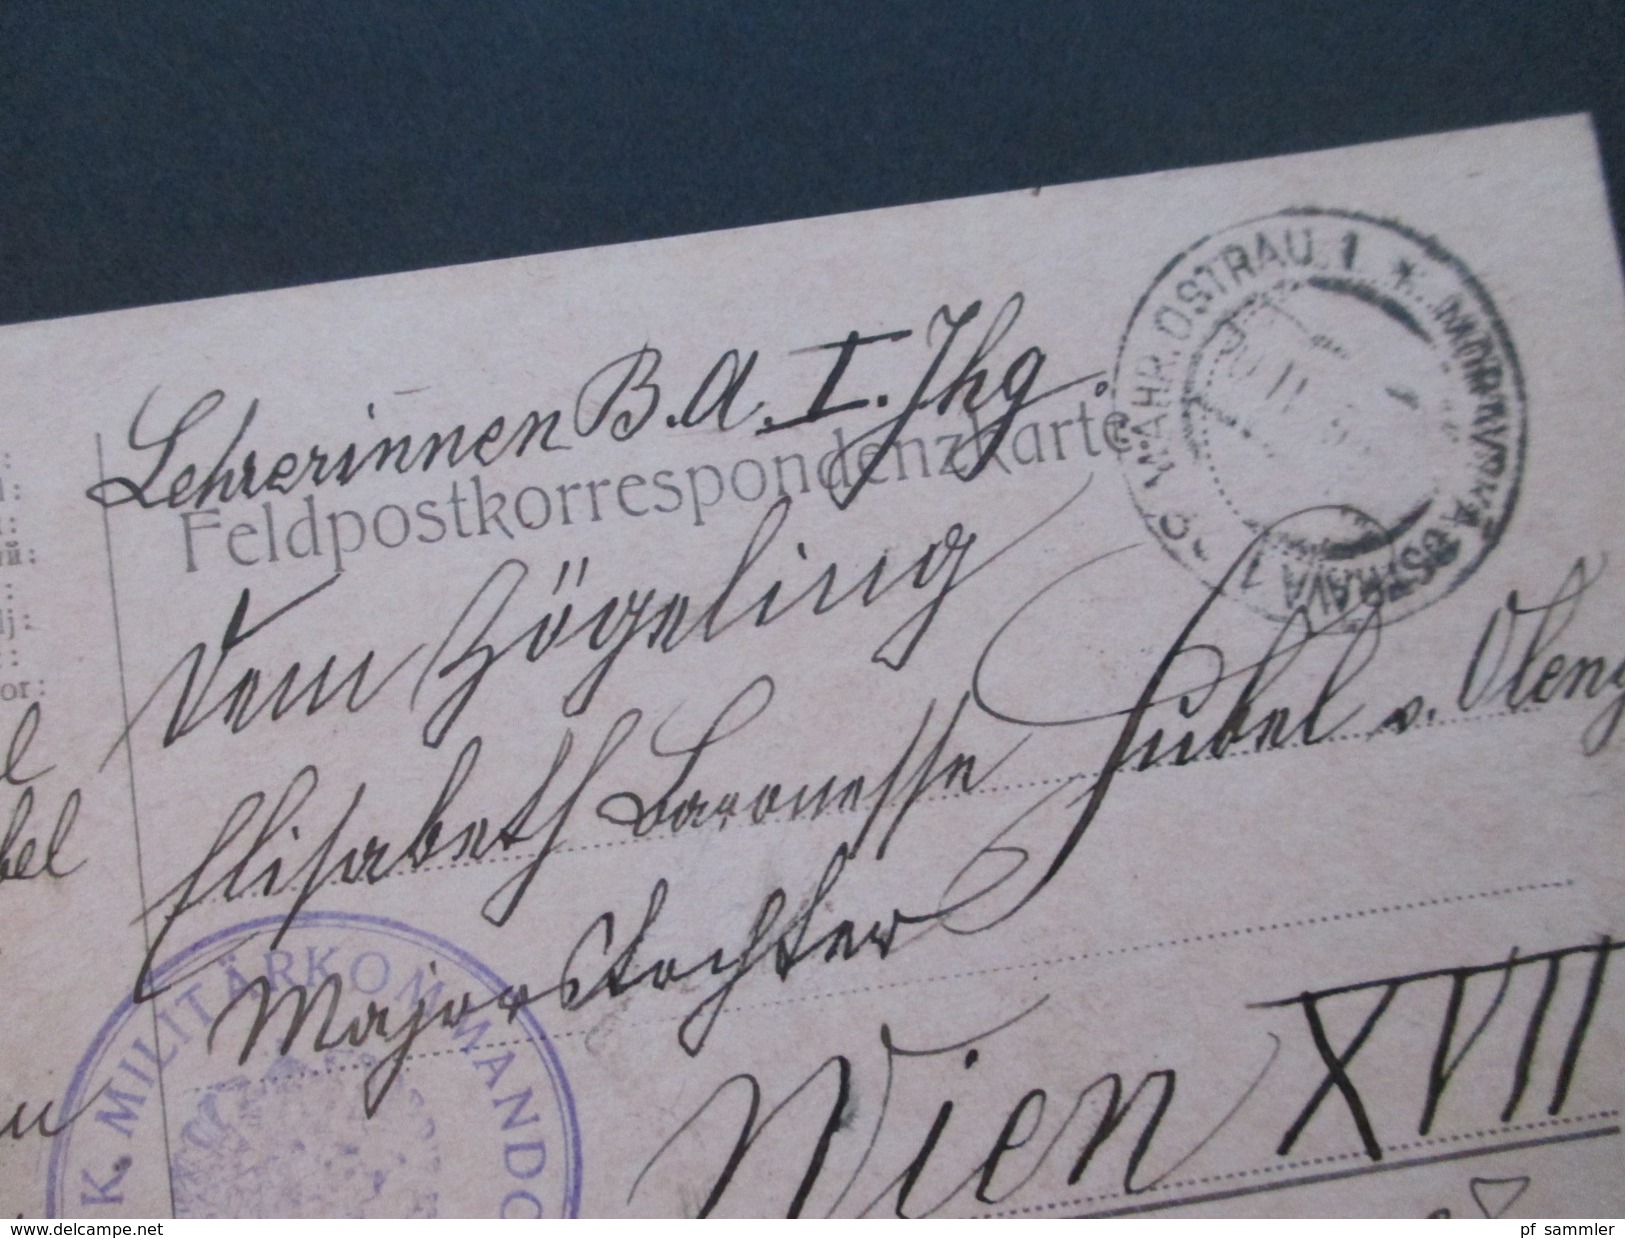 Lehrerinnen B.A. I. Jhg.
Feldpostkorrespondenzkarte
MÄHR. OSTRAU 1 * MORAVSKÁ OSTRAVA 1
Dem Zögeling
Elisabeth Baronesse Hubel v. Oleng
Majorstochter
Wien XVII
K. MILITÄRKOMMANDO
or:
bel
delcampe.net
pf_sammler